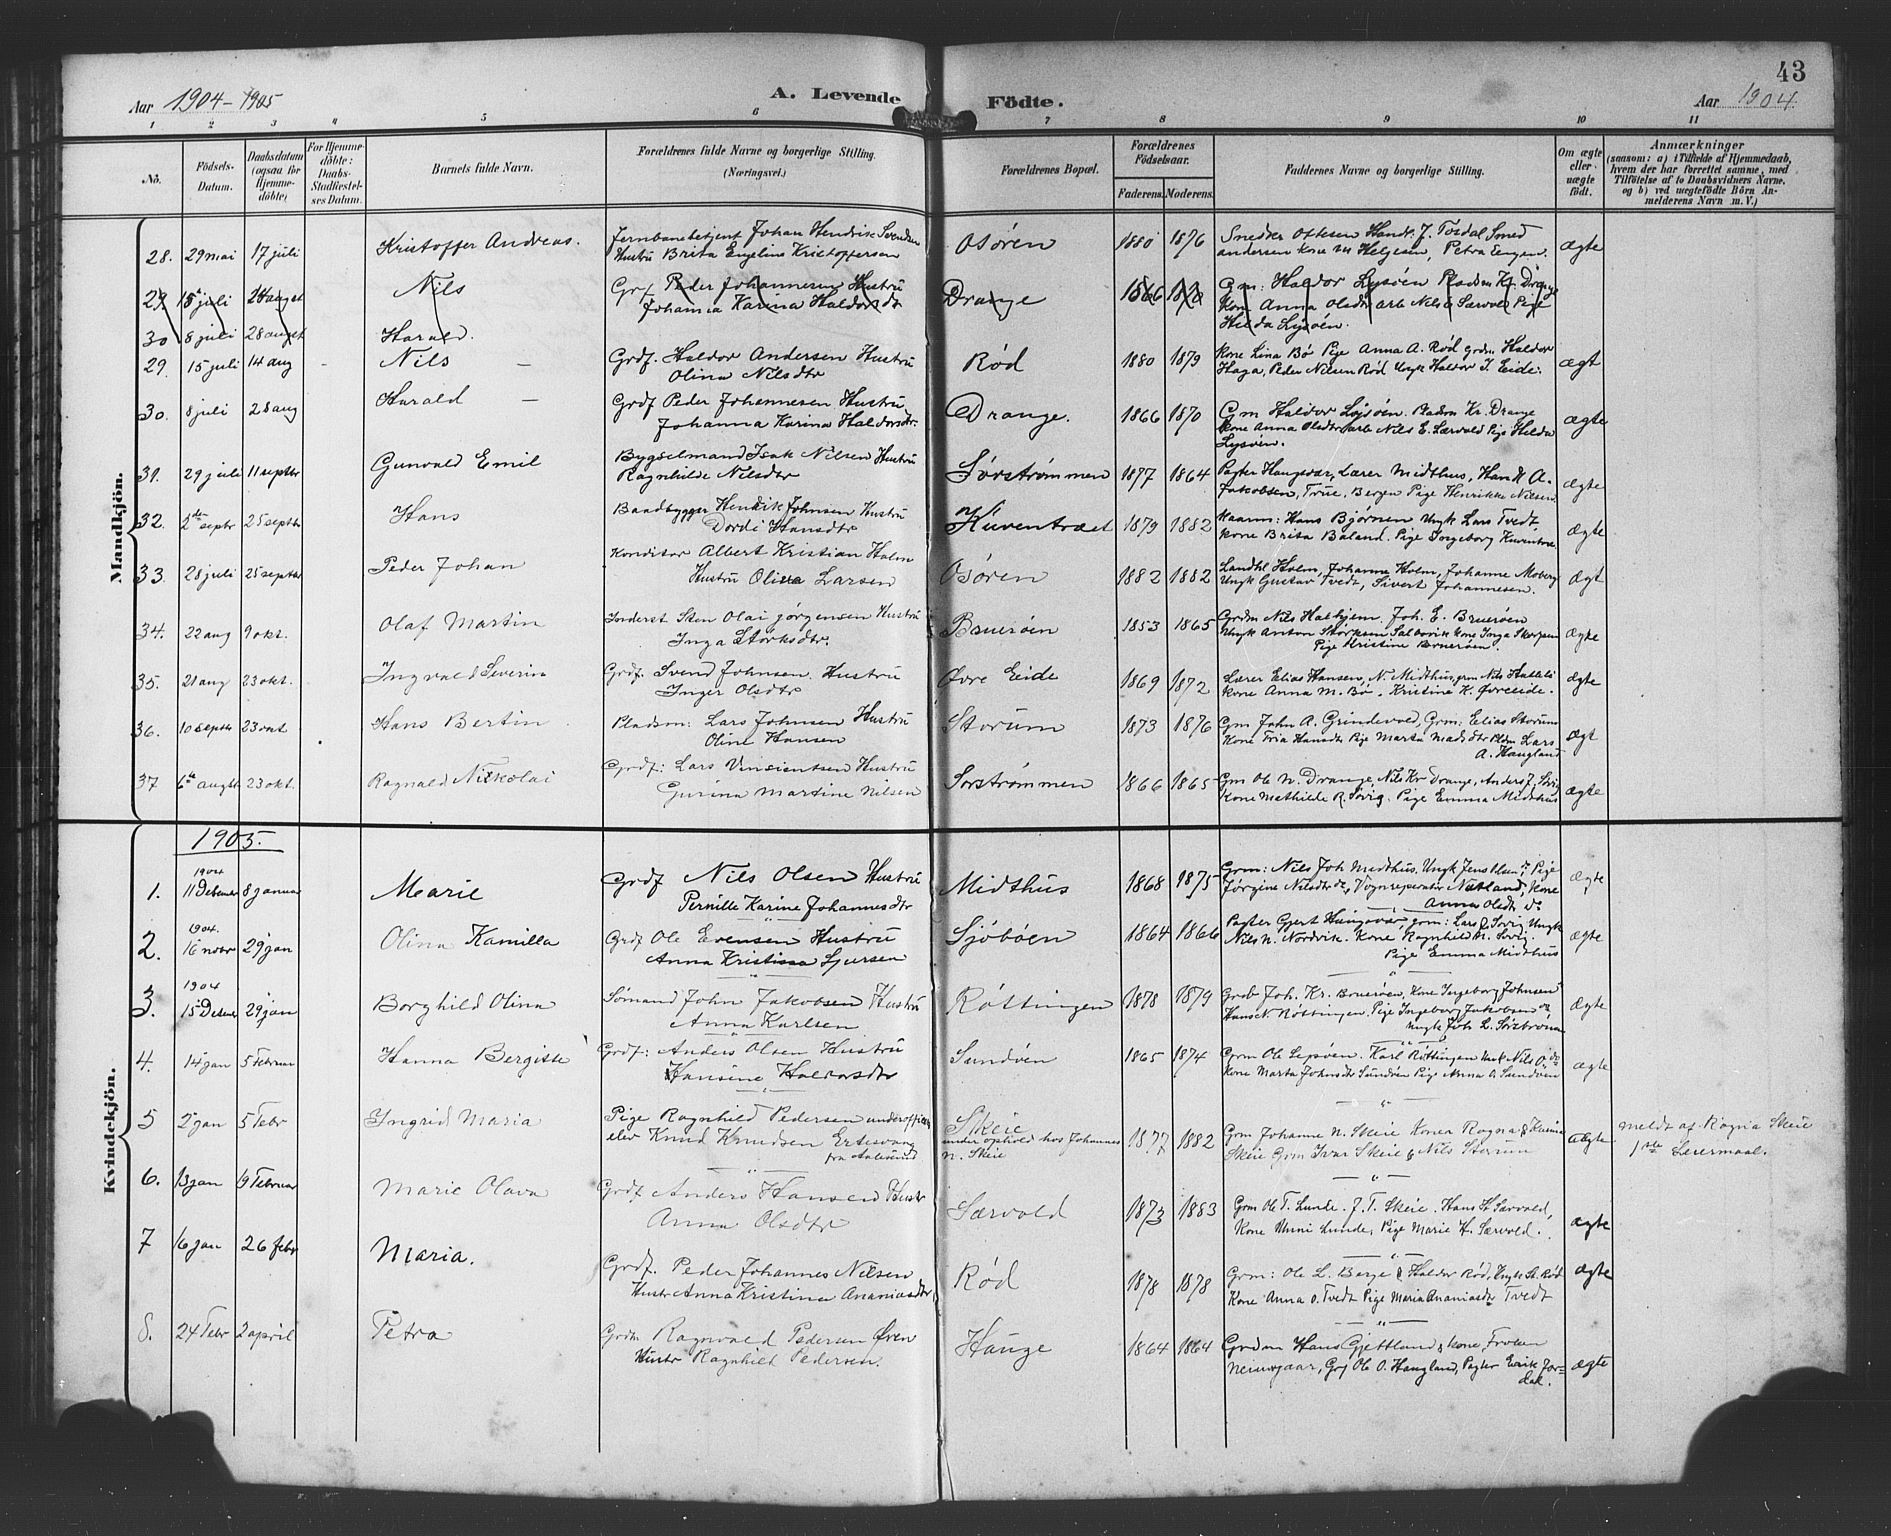 43
Aar 1904-1905
A. Levende Födte.
Aar 1904
1 2 3 4 5 6 7 8 9 10 11
No.
Födsels-Datum.
Daabsdatum (ogsaa for Hjemmedöbte)
For Hjemmedöbte: Daabs-Stadfæstelses Datum.
Barnets fulde Navn.
Forældrenes fulde Navne og borgerlige Stilling. (Næringsvei.)
Forældrenes Bopæl.
Forældrenes Födselsaar.
Faderens. Moderens.
Faddernes Navne og borgerlige Stilling.
Om ægte eller uægte födt.
Anmærkninger
(saasom: a) i Tilfælde af Hjemmedaab, hvem der har forrettet samme, med Tilföielse af to Daabsvidners Navne, og b) ved uægtefödte Börn Anmelderens Navn m. V.)
Mandkjön.
28. 29 mai 17 juli Kristoffer Andreas. Jernbanebetjent Johan Hendrik Svendsen
Hustru Brita Engeline Kristoffersen Osören 1880 1876 Snedker Ottesen Handl. J. Tosdal Smed
andersen kone M Helgesen, Petra Engen. ægte
29. 15 juli 28 augst Nils Grf Peder Johannesen Hustru
Johanna Karina Haldorsdtr Drange 1866 1870 Gm: Haldor Lysöen Pladsm Kr. Drange
Kone Anna Olsdtr arb Nils E Særvold Pige
Helda Lysöen.
30 8 juli 28 augst Harald.
29. 15 juli 14 aug Nils Grdf. Haldor Andersen Hustru
Olina Nilsdtr Röd 1880 1879 Kone Lina Bö Pige Anna A. Röd grdm Haldor
Haga, Peder Nilsen Röd Ungk Haldor J. Eide. ægt
30. 8 juli 28 aug Harald Grdf Peder Johannesen Hustru
Johanna Karina Haldorsdtr. Drange. 1866 1870 Gm Haldor Lysöen. Pladsm Kr. Drange
Kone Anna Olsdtr arb Nils E. Særvold Pige Helda
Lysöen. ægte
31. 29 juli 11 septbr Gunvald Emil Bygselmand Isak Nilsen Hustru
Ragnhilde Nilsdtr Sörströmmen 1877 1864 Pagter Haugsvær, Lærer Midthus, Han H A.
Jakobsen, True Bergen Pige Henrikke Nilsen ægte
32. 2de septr 25 septbr Hans Baadbygger Hendrik Johnsen Hustru
Dordi Hansdtr Kuventræet 1879 1882 Kaarm: Hans Bjørnen Ungk Lars Tvedt,
kone Brita Baland. Pige Ingeborg Kuventræ. ægte
33. 28 juli 25 septbr Peder Johan Konditor Albert Kristian Holm
Hustru Olina Larsen Osören 1882 1882 Landhl Holm, Johanne Holm, Johanne Moberg
Ungk Gustav Tvedt, Sivert Johannesen. ægt
34. 22 aug 9 okt. Olaf Martin Inderst Sten Olai Jörgensen Hustru
Inga Störksdtr. Brueröen 1853 1865 Grdm Nils Halhjem. Joh. E. Bruröen
Ungk Anton Störksen Salbovik kone Inga Skorpen
Pige Kristine Bruröen. ægte
35. 21 aug 23 okt. Ingvald Severin Grdf. Svend Johnsen. Hustru
Inger Olsdtr Övre Eide 1869 1872 Lærer Elias Hansen, N. Midthus, grm Nils Hatleli
kone Anna M. Bö. Kristina K. Övreeide. ægte
36. 10 septbr 23 okt Hans Bertin Pladsm: Lars Johnsen Hustru
Oline Hansen Storum 1873 1876 Gm John A. Grindevold, Grm: Elias Storum
Kone Fria Hansdtr Pige Marta Madsdtr Pldm Lars
A. Haugland ægt
37 6te augst 23 okt. Ragnald Nikolai Grdf: Lars Vinsientsen Hustru
Gurina Martine Nilsen Sörströmmen 1866 1865 Gm Ole N. Drange, Nils Kr Drange, Anders J. Sörig
Kone Mathilde R. Sörig. Pige Emma Midthus ægte
1905.
Kvindekjön.
1. 1904 11 Desember 8 januar Marie Grdf Nils Olsen Hustru
Pernille Karine Johannesdtr Midthus 1868 1875 Grm: Nils Joh Midthus, Ungk Jens Olsen do, Pige
Jörgine Nilsdtr do, Vognreperatör Natland, Kone
Anna Olsdtr do ægte
2. 1904. 16 novbr 29 jan Olina Kamilla Grdf Ole Evensen Hustru
Anna Kristina Sjursen Sjöböen 1864 1866 Pagter Gjert Haugsvær, grm: Lars J Sörig Ungk
Nils N. Nordvik. Kone Ragnhild M. Sörig.
Pige Emma Midthus ægte
3. 1904 15 Desember 29 jan Borghild Olina Sömand John Jakobsen Hustru
Anna Karlsen Röttingen 1878 1879 Grdb Joh. Kr. Bruröen, Kone Ingeborg Johnsen
Hans N. Röttingen. Pige Ingeborg Jakobsen do,
Ungk Joh. L. Sörström ægte
4. 14 jan 5 Februar Hanna Bergitte Grdf: Anders Olsen Hustru
Hansine Haldorsdtr Sundöen 1865 1874 Grm Ole Lepsöen. Karl Röttingen Ungk Nils O. do
Kone Marta Johnsdtr Sundöen Pige Anna O. Sundöen ægte
5 2 jan 5 Febr Ingrid Maria Pige Ragnhild Pedersen underoffisers
elev Knud Knudsen Ertesvaag
fra Aalesund Skeie
under ophold hos Johannes
N. Skeie 1877 1882 Grm Johanne N. Skeie Konea Ragna & Karina
Skeie Grm Ivar Skeie & Nils Storum uægte meldt af Ragna Skeie
1ste Leiermaal.
6. 13 jan 19 Februar Marie Olava Grdf Anders Hansen Hustr
Anna Olsdtr Særvold 1873 1883 Grm Ole T. Lunde. J. T. Skeie. Hans H Særvold,
Kone Unni Lunde, Pige Marie H. Særvold. ægte
7 16 jan 26 febr Maria. Grdf. Peder Johannes Nilsen
Hustr Anna Kristina Ananiasdtr Röd 1878 1878 Grm: Ole L. Berge & Haldor Röd, Ungk St. Röd
Kone Anna O. Tvedt Pige Maria Ananiasdtr Tvedt ægte
8. 24 Febr 2 april Petra Grdm Ragnvald Pedersen Øren
Hustr Ragnhilt Pedersen. Hauge 1864 1864 Grdm Hans Gjettland & kone, Froken
Neimsgaar, Grf Ole O. Haugland, Pagter Erik Jor=
dal. ægte